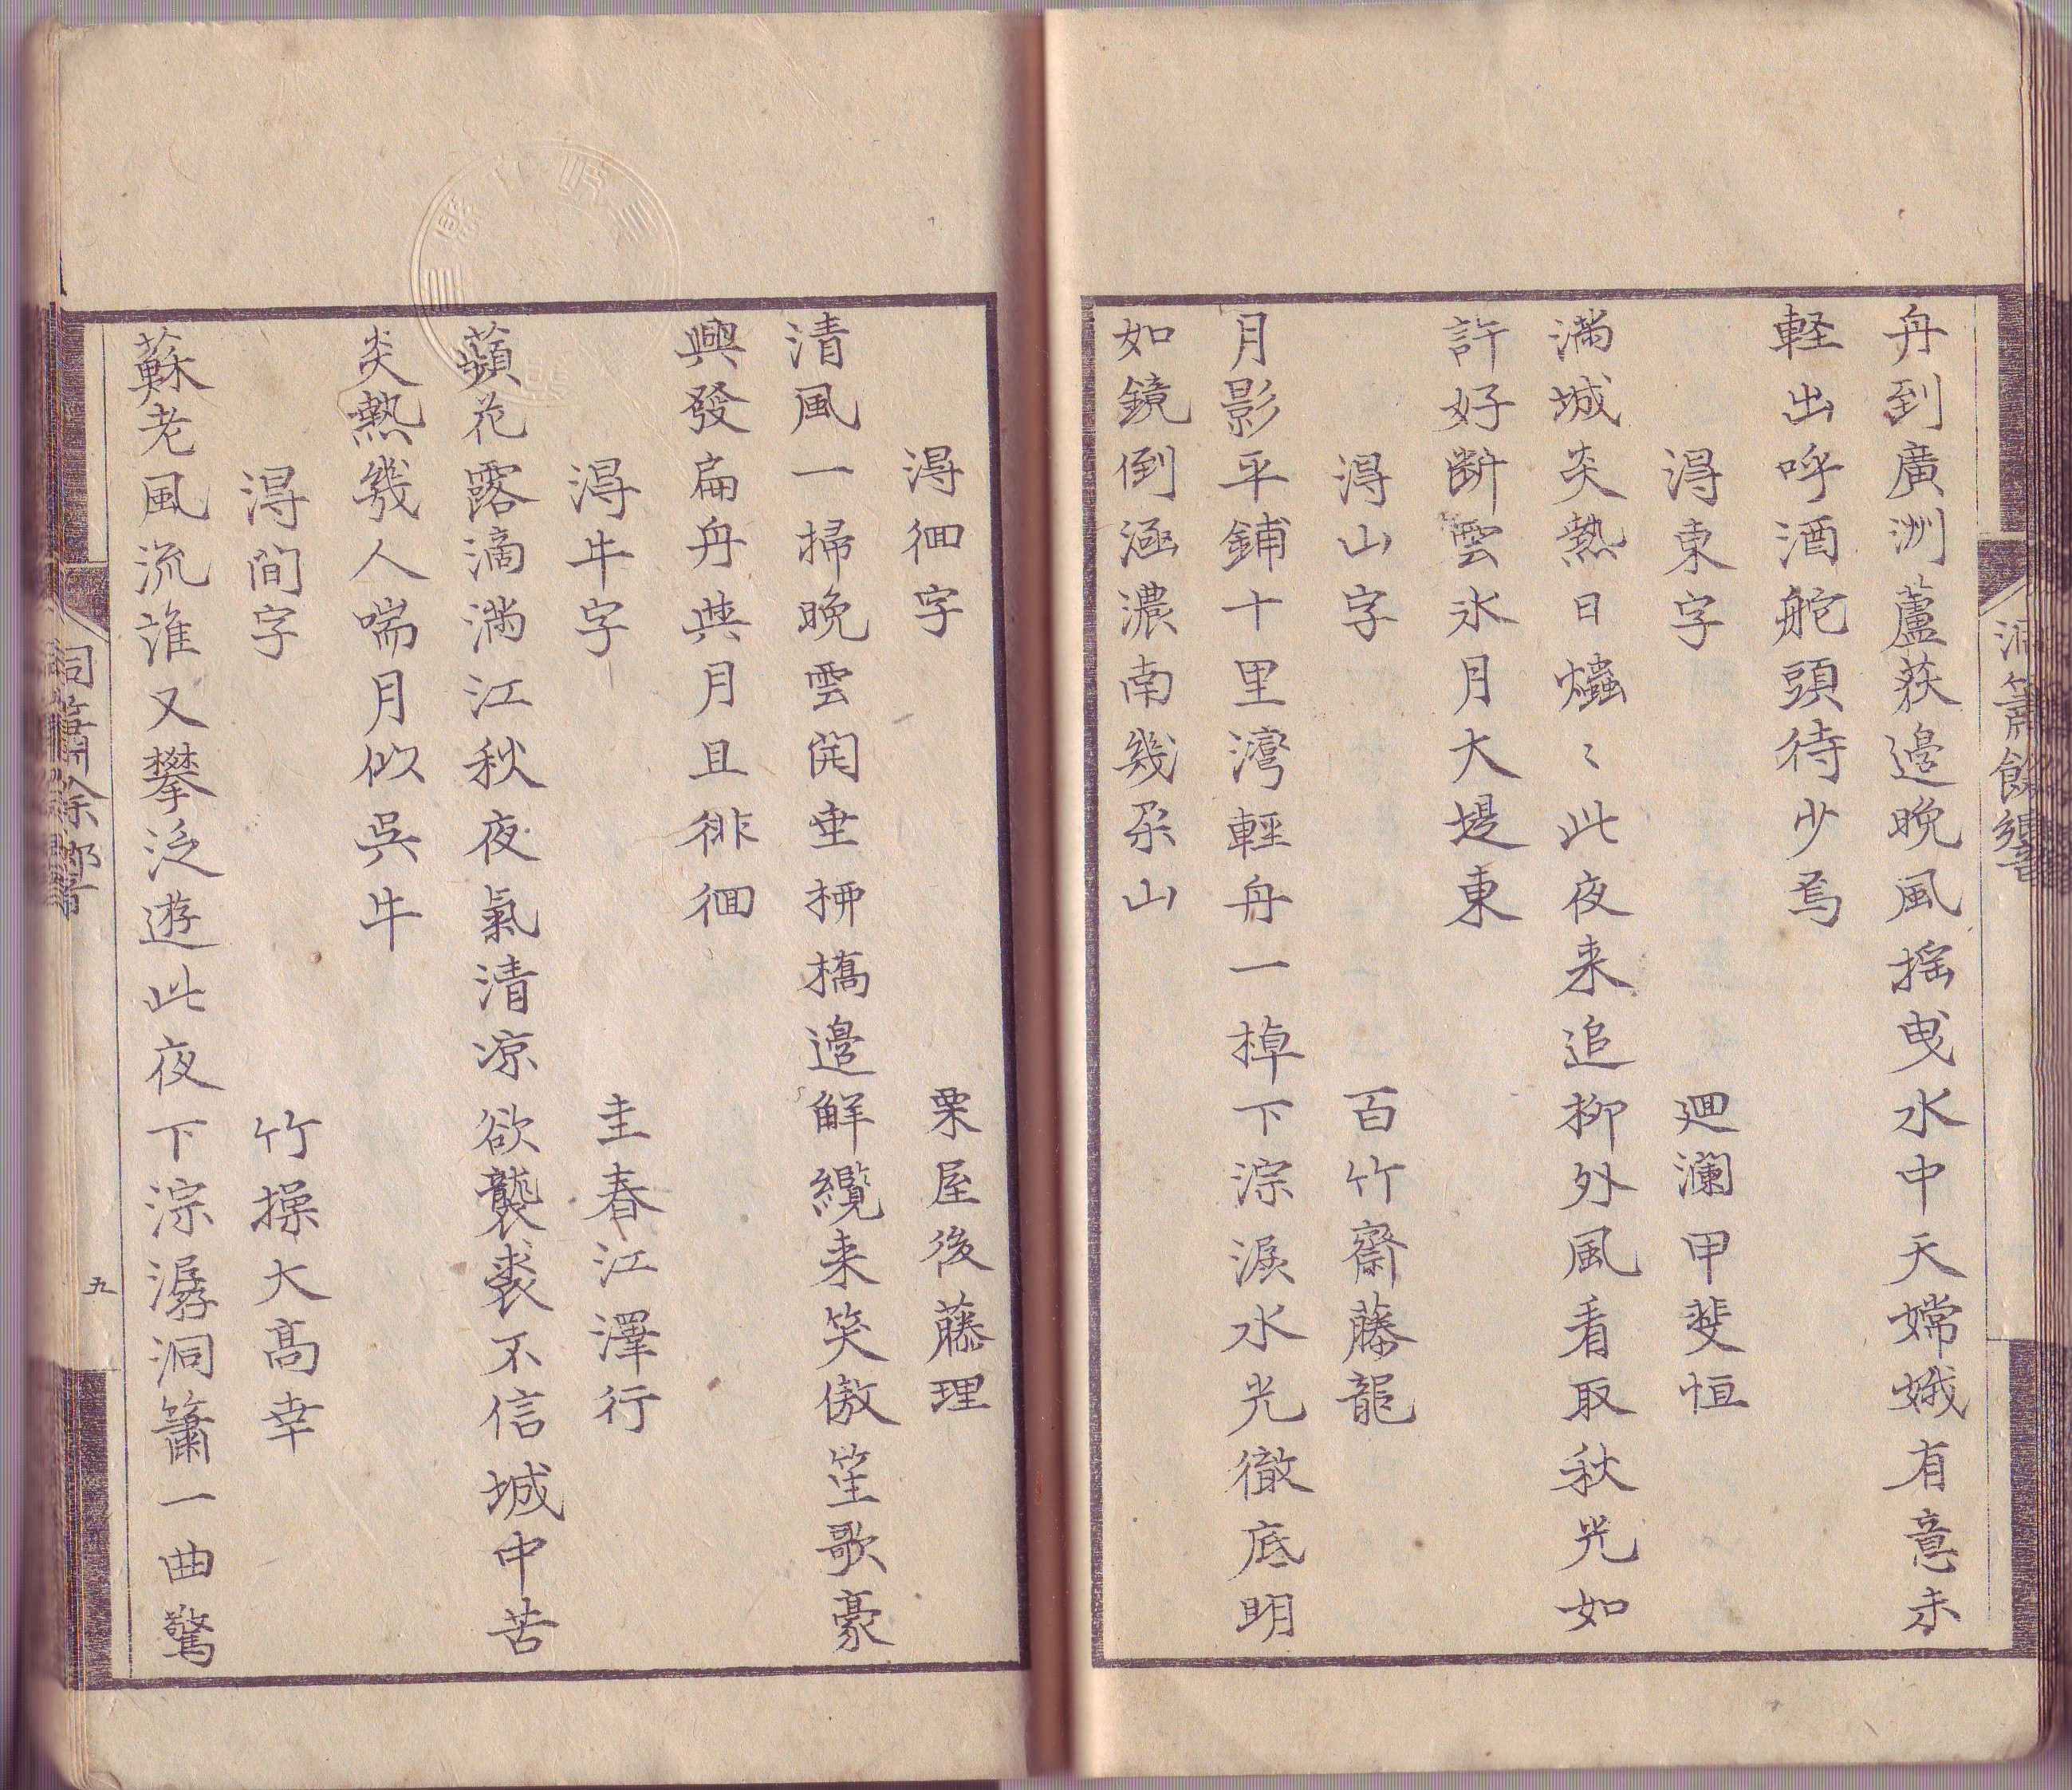 洞簫餘響
舟到廣洲蘆荻邊晚風搖曳水中天嫦娥有意未
軽出呼酒舵頭待少焉
得東字 廻瀾甲斐恒
満城炎熱日爞〻此夜来追柳外風看取秋光如
許好断雲氷月大堤東
得山字 百竹齋藤龍
月影平鋪十里灣輕舟一棹下淙淚水光徹底明
如鏡倒涵濃南幾朶山
得徊字 栗屋後藤理
清風一掃晩雲開垂柳橋邊解纜来笑傲笙歌豪
興發扁舟與月且徘徊
得牛字 圭春江澤行
蘋花露滴満江秋夜氣清凉欲襲裘不信城中苦
炎熱幾人喘月似呉牛
得間字 竹操大髙幸
蘇老風流誰又攀泛遊此夜下淙潺洞簫一曲驚
洞簫餘響
五